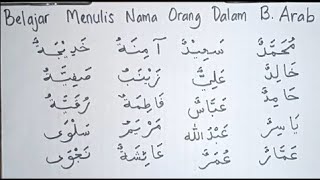 Belajar Menulis Nama Orang Dalam B. Arab
مُحَمَّدٌ سَعِيْدٌ آمِنَةُ خَدِيْجَةُ
خَالِدٌ عَلِيٌّ زَيْنَبُ صَفِيَّةُ
حَامِدٌ عَبَّاسٌ فَاطِمَةُ رُقَيَّةُ
يَاسِرٌ عَبْدُ الله مَرْيَمُ سَلْوَى
عَمَّارٌ عُمَرُ عَائِشَةُ نَجْوَى